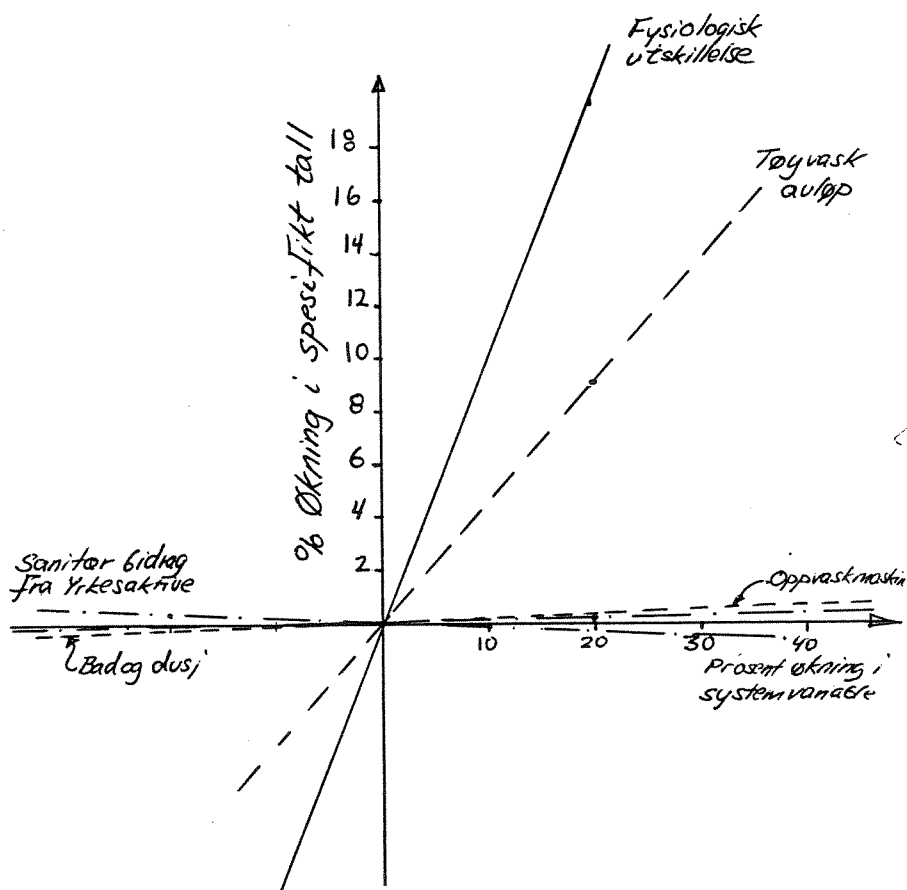 Fysiologisk
utskillelse
Tøyvask
avløp
% Økning i spesifikt tall
18
16
14
12
10
8
6
4
2
Sanitær bidrag
fra Yrkesaktive
Oppvaskmaskin
Bad og dusj
10 20 30 40
Prosent økning i
systemvariable